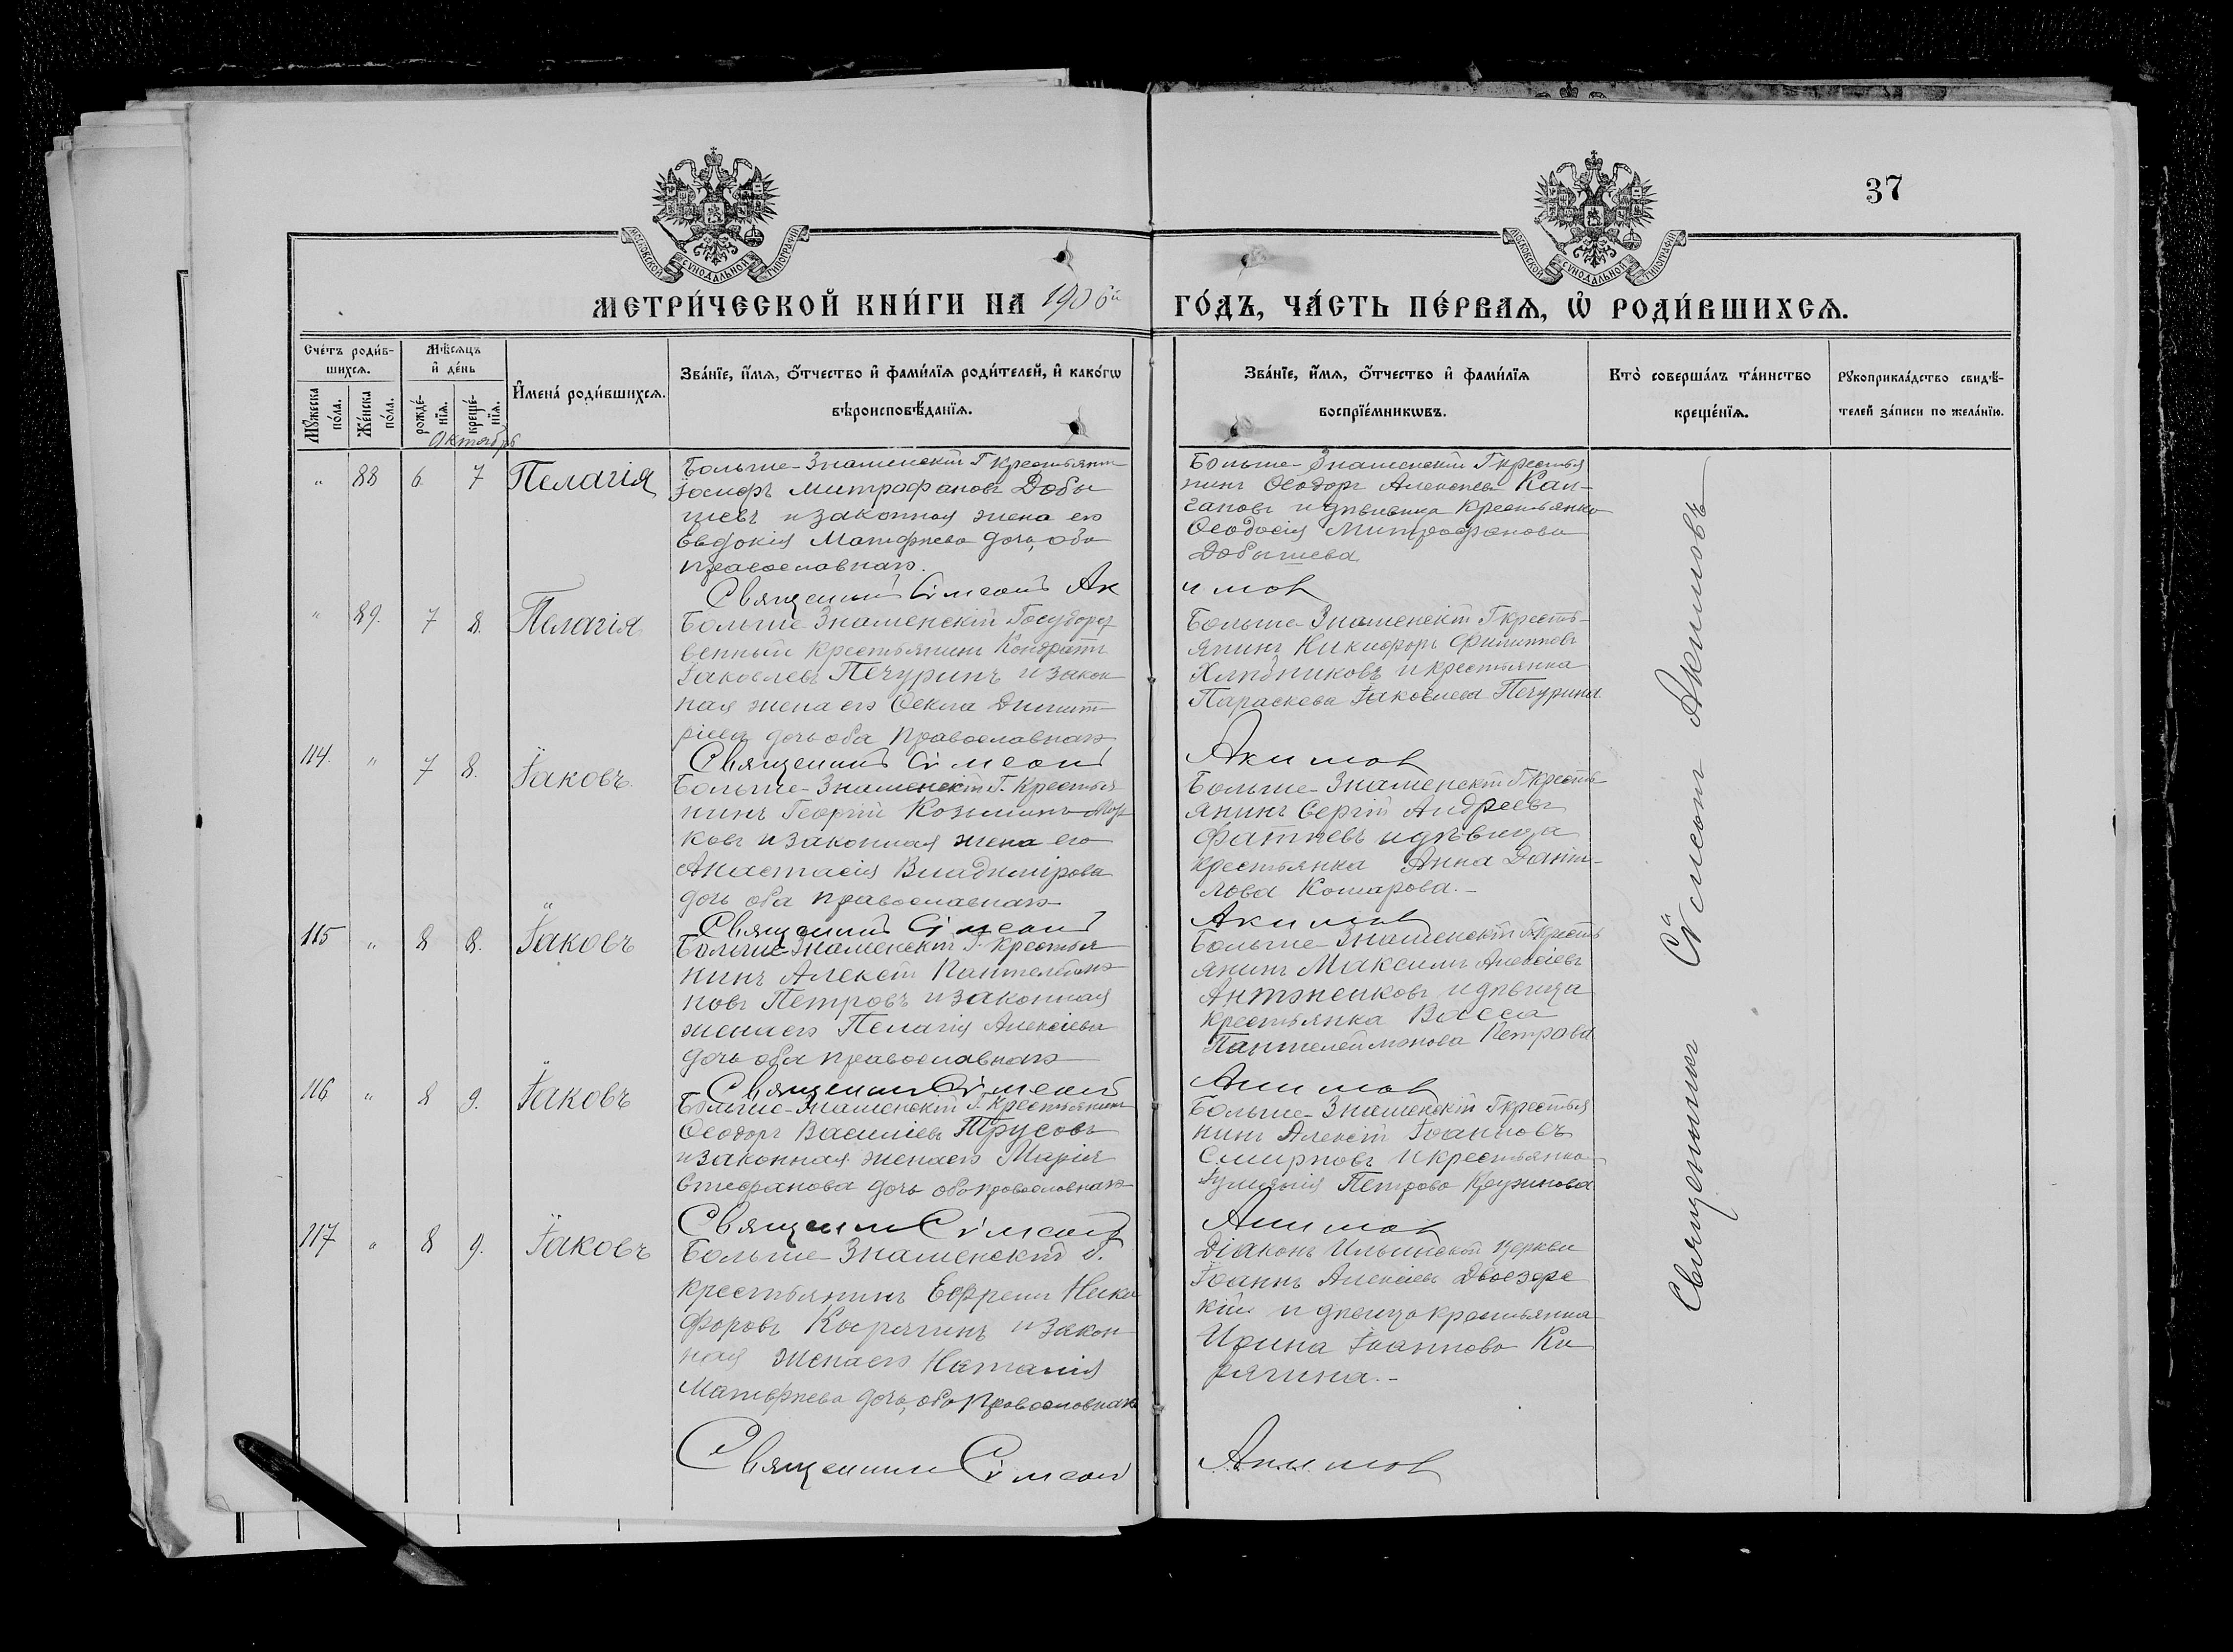 37
МОСКОВСКОЙ СУНОДАЛЬНОЙ ТИПОГРАФІИ
МОСКОВСКОЙ СУНОДАЛЬНОЙ ТИПОГРАФІИ
МЕТРИ́ЧЕСКОЙ КНИ́ГИ НА 1906й
ГО́ДЪ, ЧА́СТЬ ПЕ́РВАѦ, Ѡ҆ РОДИ́ВШИХСѦ.
Сче́тъ роди́в-
шихсѧ.
Мꙋ́жеска по́ла.
Же́нска по́ла.
Мѣ́сѧцъ
и҆ де́нь
рожде́-
нїѧ.
креще́-
нїѧ.
Октябрь
И҆мена̀ роди́вшихсѧ.
Зва́нїе, и҆́мѧ, ѻ҆́тчество и҆ фами́лїѧ роди́телей, и҆ како́гѡ
вѣроисповѣ́данїѧ.
Зва́нїе, и҆́мѧ, ѻ҆́тчество и҆ фами́лїѧ
воспрїе́мникѡвъ.
Кто̀ соверша́лъ та́инство
креще́нїѧ.
Рꙋкоприкла́дство свидѣ́-
телей за́писи по жела́нїю.
" 88 6 7 Пелагія
Больше-Знаменскій Г крестьянин
Іосифъ Митрофановъ Добы
шевъ и законная жена его
Евдокія Матфѣева дочь, оба
православнаго.
Священникъ Сѵмеонъ Ак
Больше-Знаменскій Г крестья
нинъ Ѳеодоръ Алексѣевъ Кал-
гановъ и дѣвица крестьянка
Ѳеодосія Митрофанова
Добышева
имов
" 89. 7 8. Пелагія
Больше-Знаменскій Государст
венный крестьянинъ Кондратій
Іаковлевъ Печуринъ и закон
ная жена его Ѳекла Димит-
ріева дочь оба православнаго
Священникъ Сѵмеонъ
Больше-Знаменскій Г кресть-
янинъ Никифоръ Филипповъ
Хлѣбниковъ и крестьянка
Параскева Іаковлева Печурина
Акимов
114. " 7 8. Іаковъ.
Больше-Знаменскій Г. Крестья
нинъ Георгій Козьминъ
ковъ и законная жена его
Анастасія Владимірова
дочь оба православнаго
Священникъ Сѵмеонъ
Больше-Знаменскій Г. Кресть
янинъ Сергій Андреевъ
Фатѣевъ и дѣвица
крестьянка Анна Дании-
лова Комарова.-
Акимов
115 " 8 8. Іаковъ
Больше-Знаменскій Г. Крестья
нинъ Алексѣй Пантелеймо
новъ Петровъ и законная
жена его Пелагія Алексіева
дочь оба православнаго
Священникъ Сѵмеонъ
Больше Знаменскій Г. Кресть
янинъ Максимъ Алексіевъ
и дѣвица
крестьянка Васса
Пантелеймонова Петрова
Акимов
116 " 8 9. Іаковъ
Больше-Знаменскій Г. Крестьянинъ
Ѳеодоръ Василіевъ Трусовъ
и законная жена его Марія
Стефанова дочь оба православнаго
Священник Сѵмеонъ
Больше-Знаменскій Г крестья
нинъ Алексѣй Іоанновъ
Смирновъ и крестьянка
Петрова
Акимов
117 " 8 9. Іаковъ
Больше-Знаменскій Г.
крестьянинъ Ефремъ Ники
форовъ Кирягинъ и закон
ная жена его Наталія
Матфѣева дочь, оба православнаго
Священник Сѵмеон
Діаконъ Ильинской церкви
Іоаннъ Алексіевъ
кій и дѣвица крестьянка
Ирина Іоаннова Ки
рягина.-
Акимов
Священникъ Сѵмеонъ Акимовъ